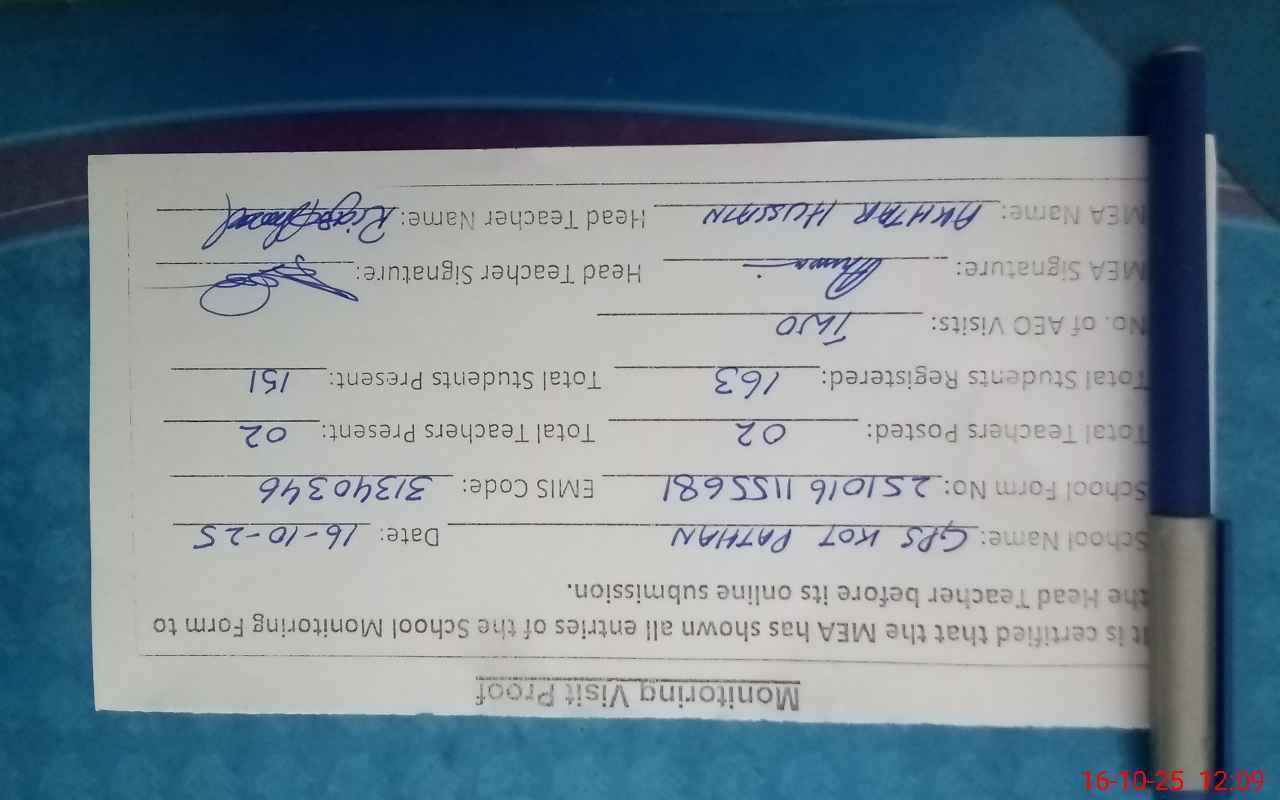 Monitoring Visit Proof
It is certified that the MEA has shown all entries of the School Monitoring Form to
the Head Teacher before its online submission.
School Name: GPS KOT PATHAN Date: 16-10-25
School Form No: 251016 1155681 EMIS Code: 31340346
Total Teachers Posted: 02 Total Teachers Present: 02
Total Students Registered: 163 Total Students Present: 151
No. of AEO Visits: Two
MEA Signature: Head Teacher Signature:
MEA Name: AKHTAR HUSSAIN Head Teacher Name:
16-10-25 12:09